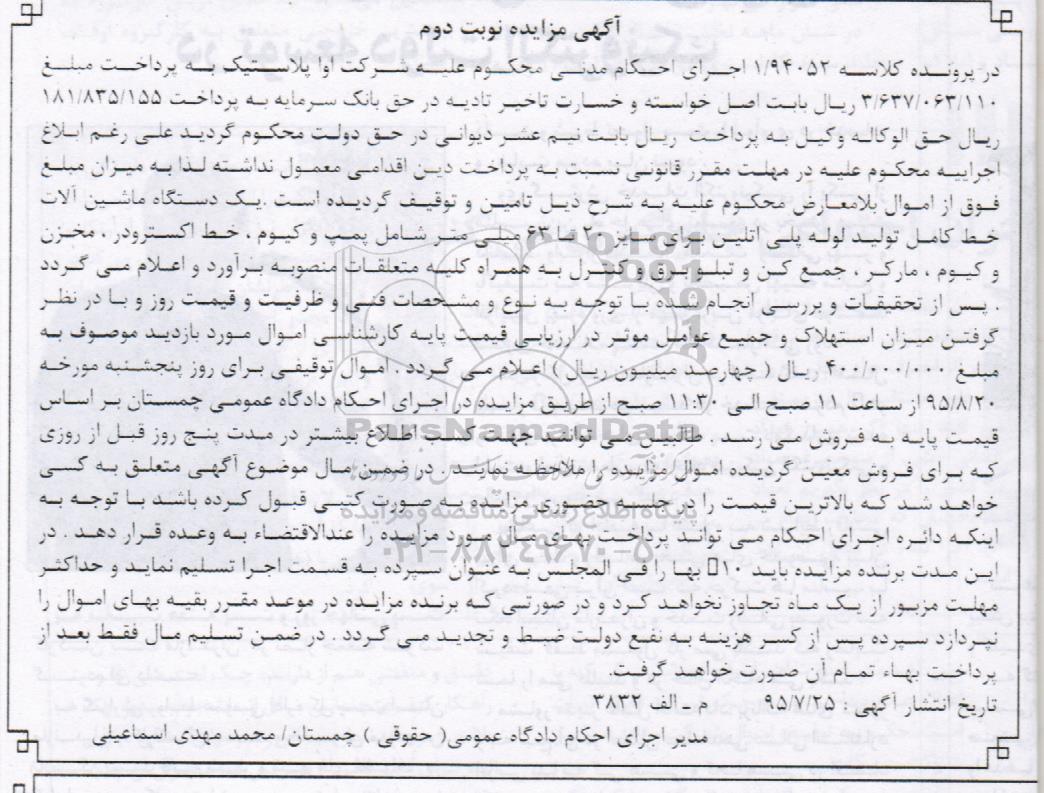 آگهی مزایده نوبت دوم
در پرونده کلاسه ۱/۹۴۰۵۲ اجرای احکام مدنی محکوم علیه شرکت اوا پلاستیک به پرداخت مبلغ
۳/۶۳۷/۰۶۳/۱۱۰ ریال بابت اصل خواسته و خسارت تاخیر تادیه در حق بانک سرمایه به پرداخت ۱۸۱/۸۳۵/۱۵۵
ریال حق الوکاله وکیل به پرداخت ریال بابت نیم عشر دیوانی در حق دولت محکوم گردید علی رغم ابلاغ
اجراییه محکوم علیه در مهلت مقرر قانونی نسبت به پرداخت دین اقدامی معمول نداشته لذا به میزان مبلغ
فوق از اموال بلامعارض محکوم علیه به شرح ذیل تامین و توقیف گردیده است .یک دستگاه ماشین آلات
خط کامل تولید لوله پلی اتلین برای سایز ۲۰ تا ۶۳ میلی متر شامل پمپ و کیوم ، خط اکسترودر ، مخزن
و کیوم ، مارکر ، جمع کن و تبلو برق و کنترل به همراه کلیه متعلقات منصوبه برآورد و اعلام می گردد
. پس از تحقیقات و بررسی انجام شده با توجه به نوع و مشخصات فنی و ظرفیت و قیمت روز و با در نظر
گرفتن میزان استهلاک و جمیع عوامل موثر در ارزیابی قیمت پایه کارشناسی اموال مورد بازدید موصوف به
مبلغ ۴۰۰/۰۰۰/۰۰۰ ریال ( چهارصد میلیون ریال ) اعلام می گردد . اموال توقیفی برای روز پنجشنبه مورخه
۹۵/۸/۲۰ از ساعت ۱۱ صبح الی ۱۱:۳۰ صبح از طریق مزایده در اجرای احکام دادگاه عمومی چمستان بر اساس
قیمت پایه به فروش می رسد . طالبین می توانند جهت کسب اطلاع بیشتر در مدت پنج روز قبل از روزی
که برای فروش تعیین گردیده اموال مزایده را ملاحظه نمایند . در ضمن مال موضوع آگهی متعلق به کسی
خواهد شد که بالاترین قیمت را در جلسه حضوری مزایده به صورت کتبی قبول کرده باشد با توجه به
اینکه دائره اجرای احکام می تواند پرداخت بهای مال مورد مزایده را عندالاقتضاء به وعده قرار دهد . در
این مدت برنده مزایده باید ۱۰ بها را فی المجلس به عنوان سپرده به قسمت اجرا تسلیم نماید و حداکثر
مهلت مزبور از یک ماه تجاوز نخواهد کرد و در صورتی که برنده مزایده در موعد مقرر بقیه بهای اموال را
نپردازد سپرده پس از کسر هزینه به نفع دولت ضبط و تجدید می گردد . در ضمن تسلیم مال فقط بعد از
پرداخت بهاء تمام آن صورت خواهد گرفت.
تاریخ انتشار آگهی : ۹۵/۷/۲۵ م - الف ۳۸۳۲
مدیر اجرای احکام دادگاه عمومی( حقوقی ) چمستان/ محمد مهدی اسماعیلی
ParsNamadData
پایگاه اطلاع رسانی مناقصه و مزایده
۰۲۱-۸۸۳۴۹۶۷۰-۵